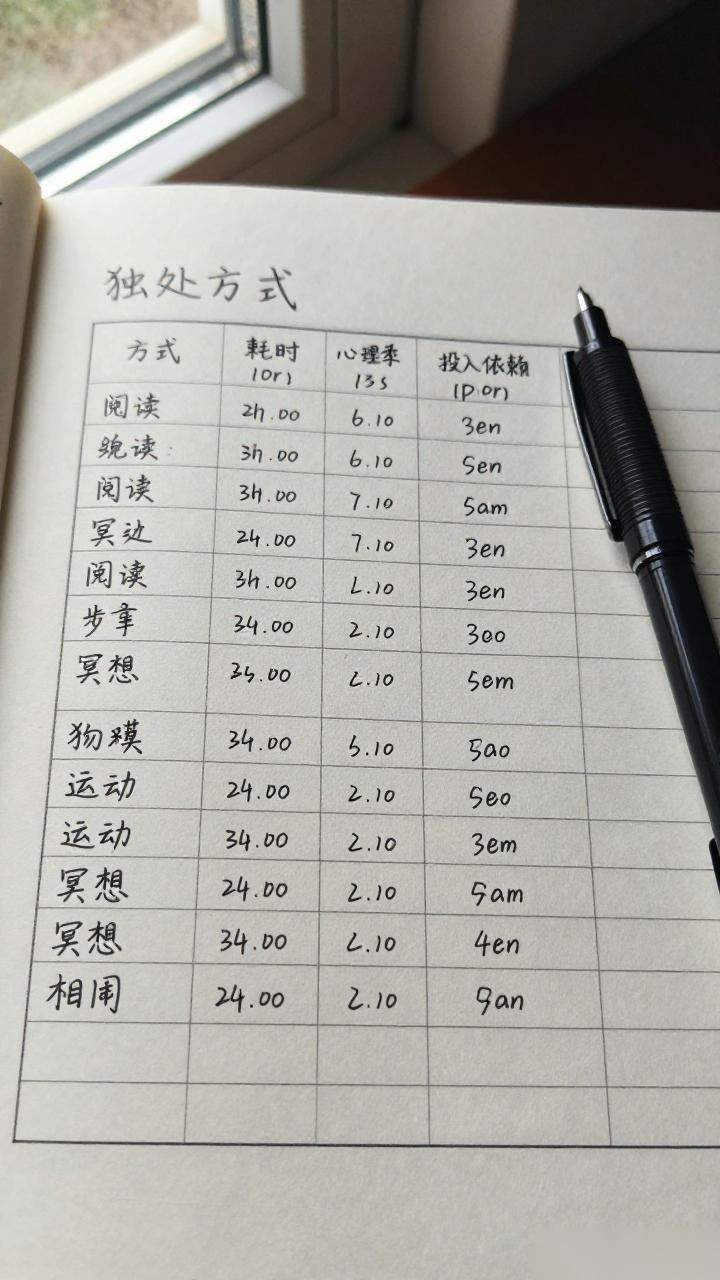 独处方式
方式 耗时 心理率 投入依赖
(or) 13s (p.or)
阅读 2h.00 6.10 3en
读 3h.00 6.10 5en
阅读 3H.00 7.10 5am
冥 24.00 7.10 3en
阅读 3h.00 2.10 3en
步 34.00 2.10 3eo
冥想 3h.00 2.10 5em
34.00 5.10 5ao
运动 24.00 2.10 5eo
运动 34.00 2.10 3em
冥想 24.00 2.10 5am
冥想 34.00 2.10 4en
相 24.00 2.10 9an